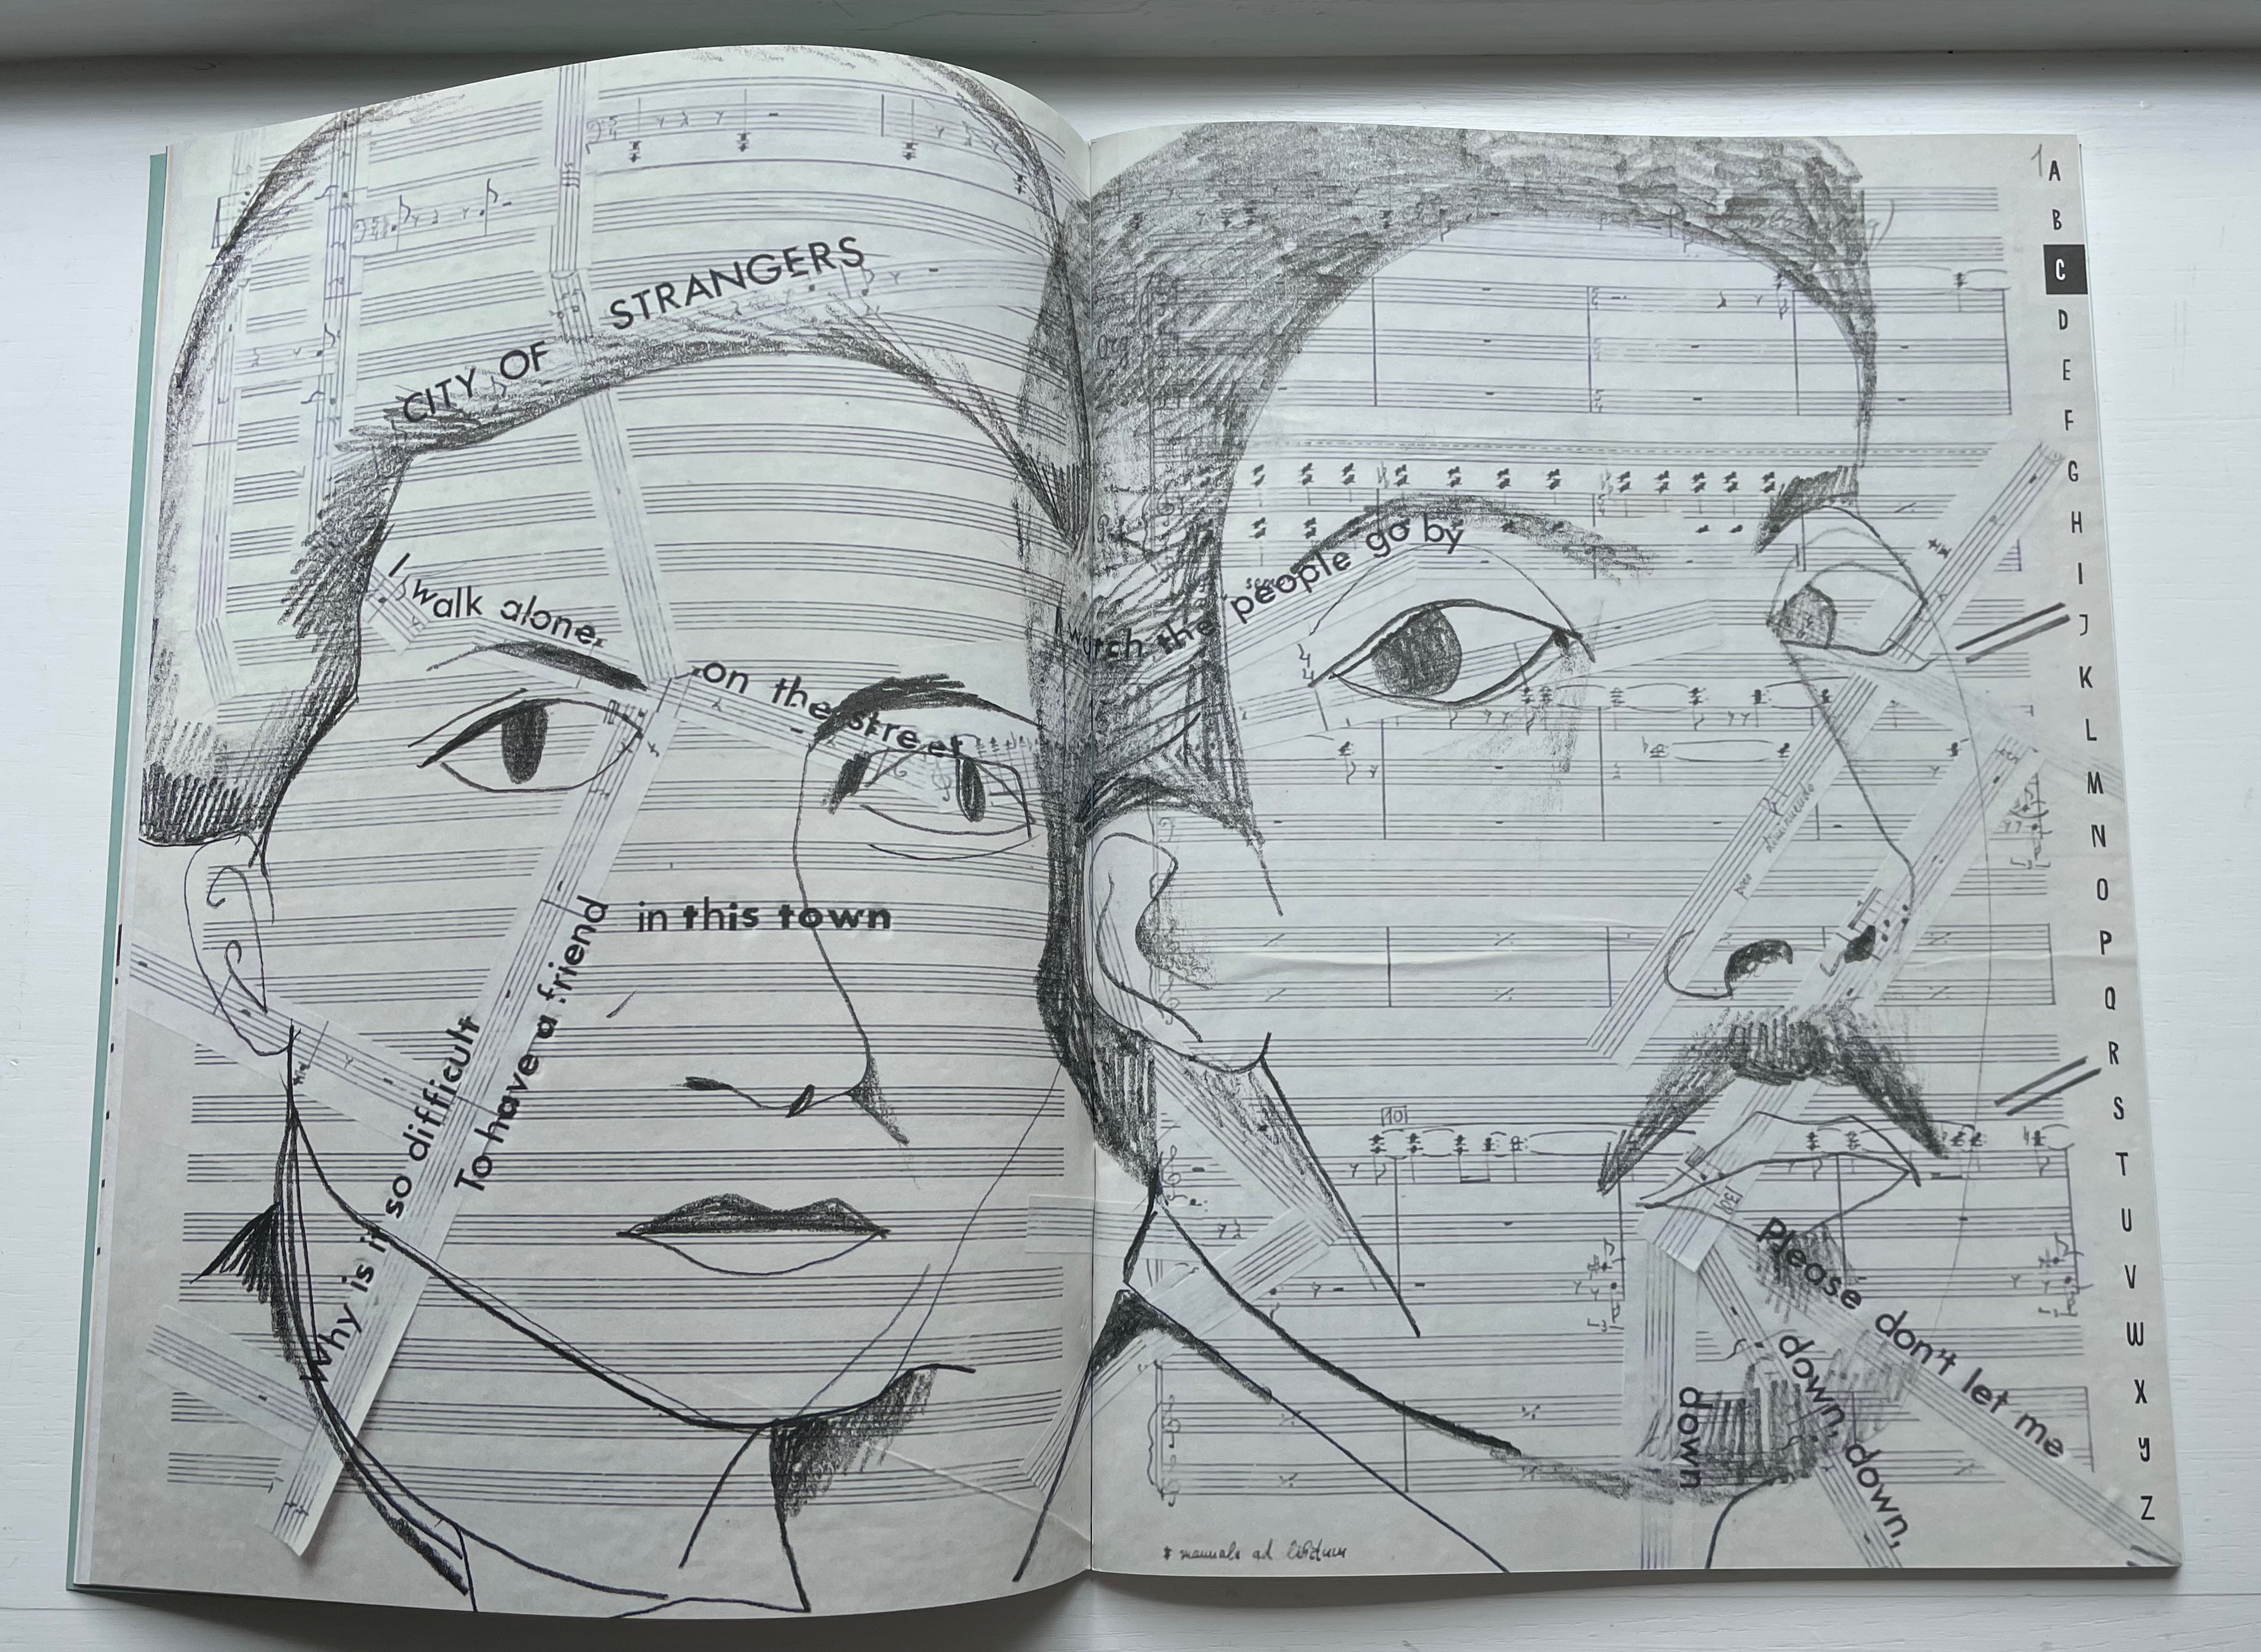 CITY OF STRANGERS
I walk alone
on the street
in this town
Why is it so difficult
To have a friend
I watch the people go by
poco diminuendo
10
130
Please don't let me
down, down,
down
* manuals ad libitum
1
A
B
C
D
E
F
G
H
I
J
K
L
M
N
O
P
Q
R
S
T
U
V
W
X
y
Z